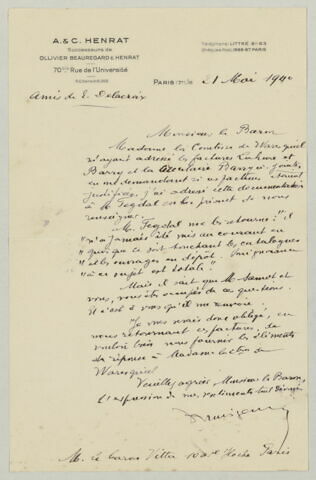 A. & C. HENRAT
Successeurs de
OLLIVIER BEAUREGARD & HENRAT
70bis Rue de l'Université
Téléphone: LITTRÉ 61-63
PARIS (7e), le 21 Mai 1940
Amis de E. Delacroix
Monsieur le Baron
Madame la Comtesse de Waresquiel
m'ayant adressé les factures et
Barry et la circulaire Barry ci-jointes
en me demandant si ces factures
justifiées, j'ai adressé cette documentation
à M. Fegdal en le priant de nous
renseigner.
M. Fegdal me les retourne: "il
"n'a jamais été mis au courant en
"quoi que ce soit touchant les catalogues
"et les ouvrages en dépôt. Mon ignorance
"à ce sujet est totale."
Mais il sait que M. Samot et
vous, vous êtes occupés de ces questions.
Il c'est à vous qu'il me renvoie.
Je vous serais donc obligé, en
nous retournant ces factures, de
vouloir bien nous fournir les éléments
de réponse à Madame la Ctsse de
Waresquiel
Veuillez agréer, Monsieur le Baron,
l'expression de mes sentiments
M. le baron Vitta Hoche Paris